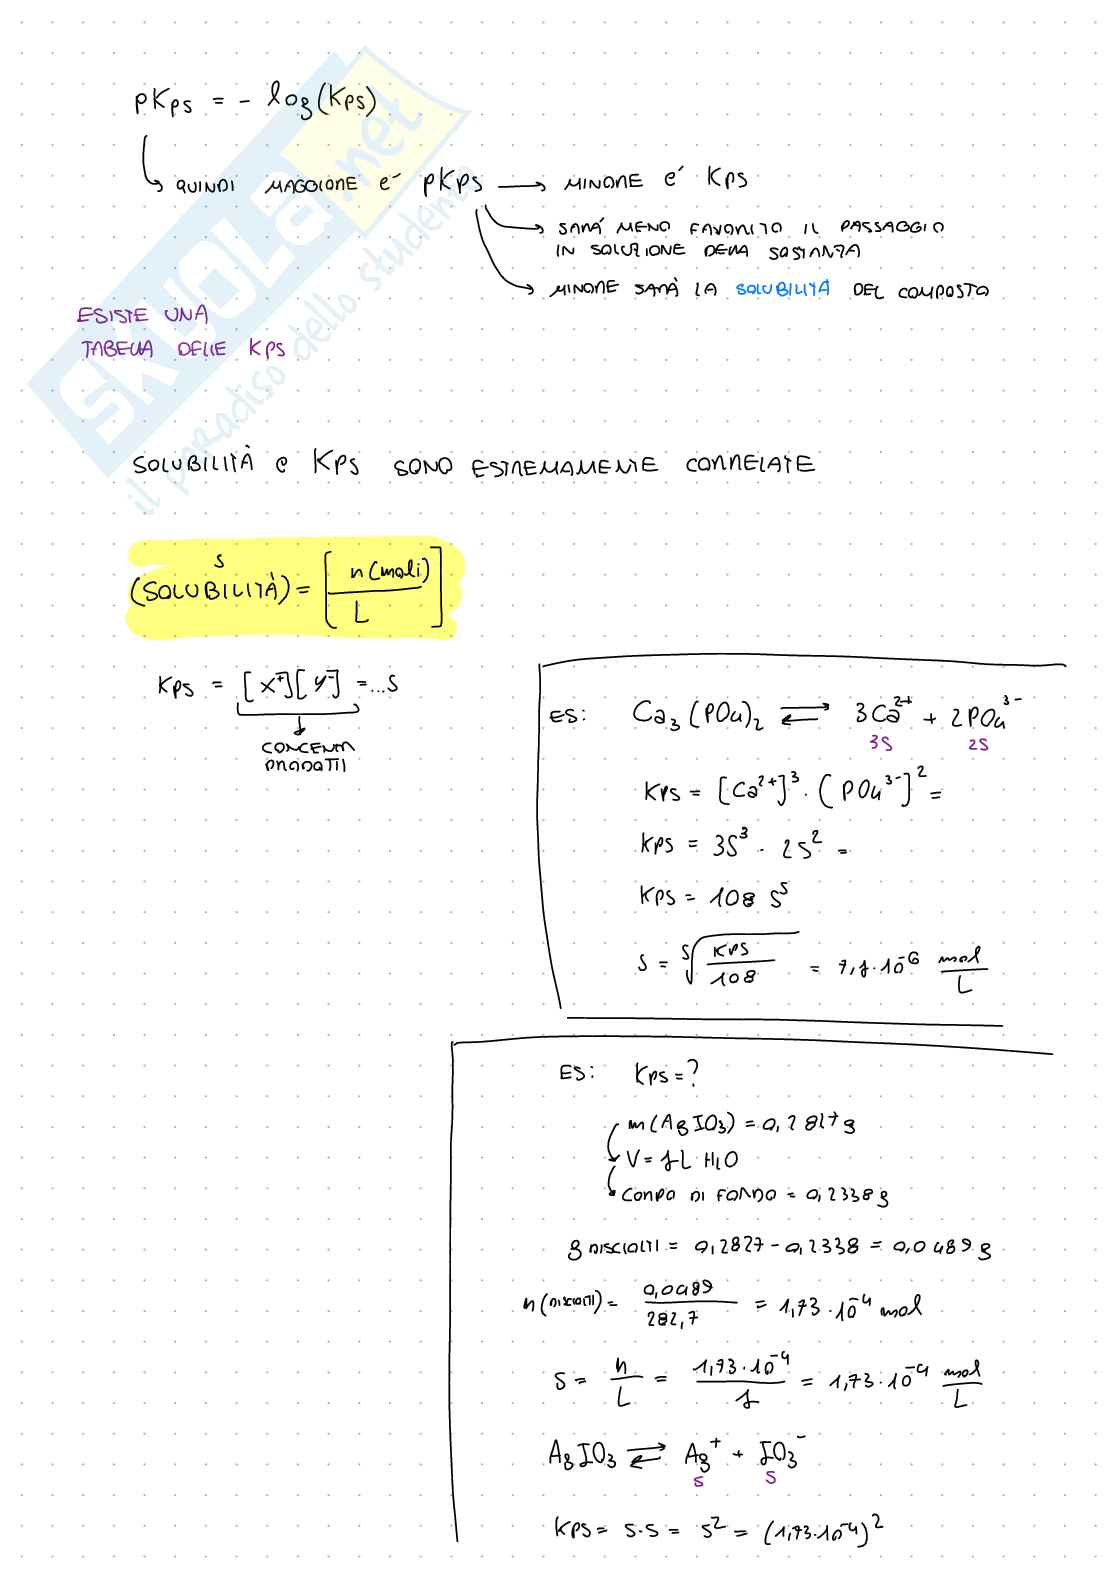 pKps = - log(Kps)
QUINDI MAGGIORE e' pKps → MINORE e' Kps
SARA' MENO FAVORITO IL PASSAGGIO
IN SOLUZIONE DELLA SOSTANZA
MINORE SARÀ LA SOLUBILITÀ DEL COMPOSTO
ESISTE UNA
TABELLA DELLE KPS
SOLUBILITÀ e KPS SONO ESTREMAMENTE CORRELATE
s
(SOLUBILITÀ) = [n(moli) / L]
Kps = [X⁺][Y⁻] = ...S
CONCENTR
PRODOTTI
ES: Ca₃(PO₄)₂ ⇌ 3Ca²⁺ + 2PO₄³⁻
3S 2S
Kps = [Ca²⁺]³ · (PO₄³⁻]² =
Kps = 3S³ · 2S² =
Kps = 108 S⁵
S = ⁵√(KPS / 108) = 7,1·10⁻⁶ mol / L
ES: Kps = ?
m(AgIO₃) = 0,2827 g
V = 1L H₂O
CORPO DI FONDO = 0,2338 g
g DISCIOLTI = 0,2827 - 0,2338 = 0,0489 g
n(DISCIOLTI) = 0,0489 / 282,7 = 1,73·10⁻⁴ mol
S = n / L = 1,73·10⁻⁴ / 1 = 1,73·10⁻⁴ mol / L
AgIO₃ ⇌ Ag⁺ + IO₃⁻
S S
Kps = S·S = S² = (1,73·10⁻⁴)²
SKUOLA.net
il paradiso dello studente